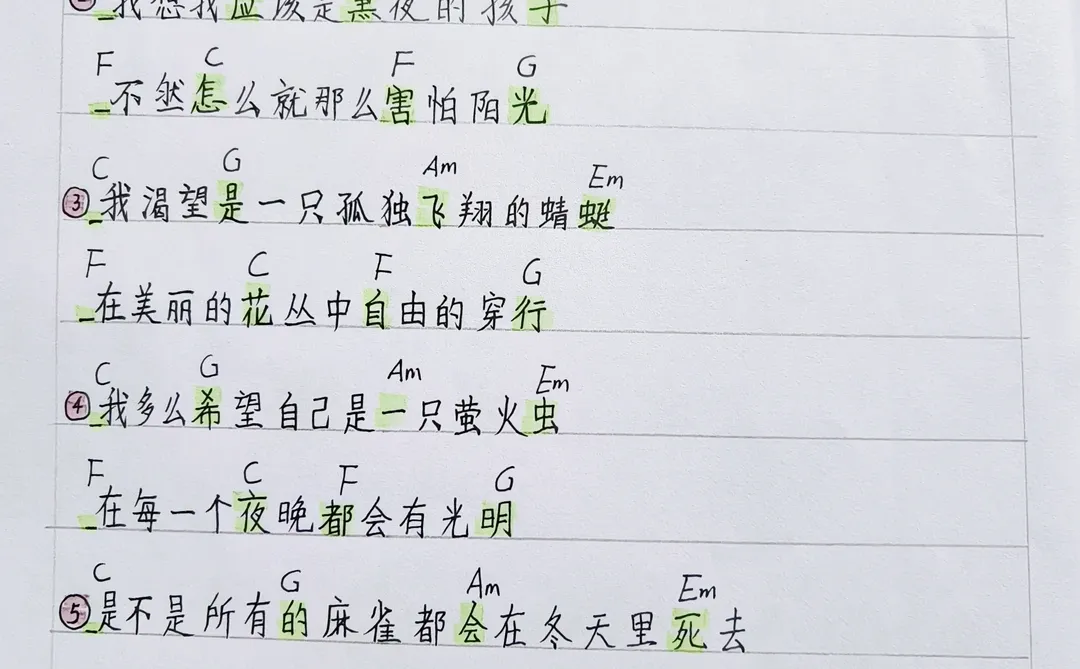 ②_我想我应该是黑夜的孩子
F C F G
_不然怎么就那么害怕阳光
C G Am Em
③_我渴望是一只孤独飞翔的蜻蜓
F C F G
_在美丽的花丛中自由的穿行
C G Am Em
④_我多么希望自己是一只萤火虫
F C F G
_在每一个夜晚都会有光明
C G Am Em
⑤_是不是所有的麻雀都会在冬天里死去